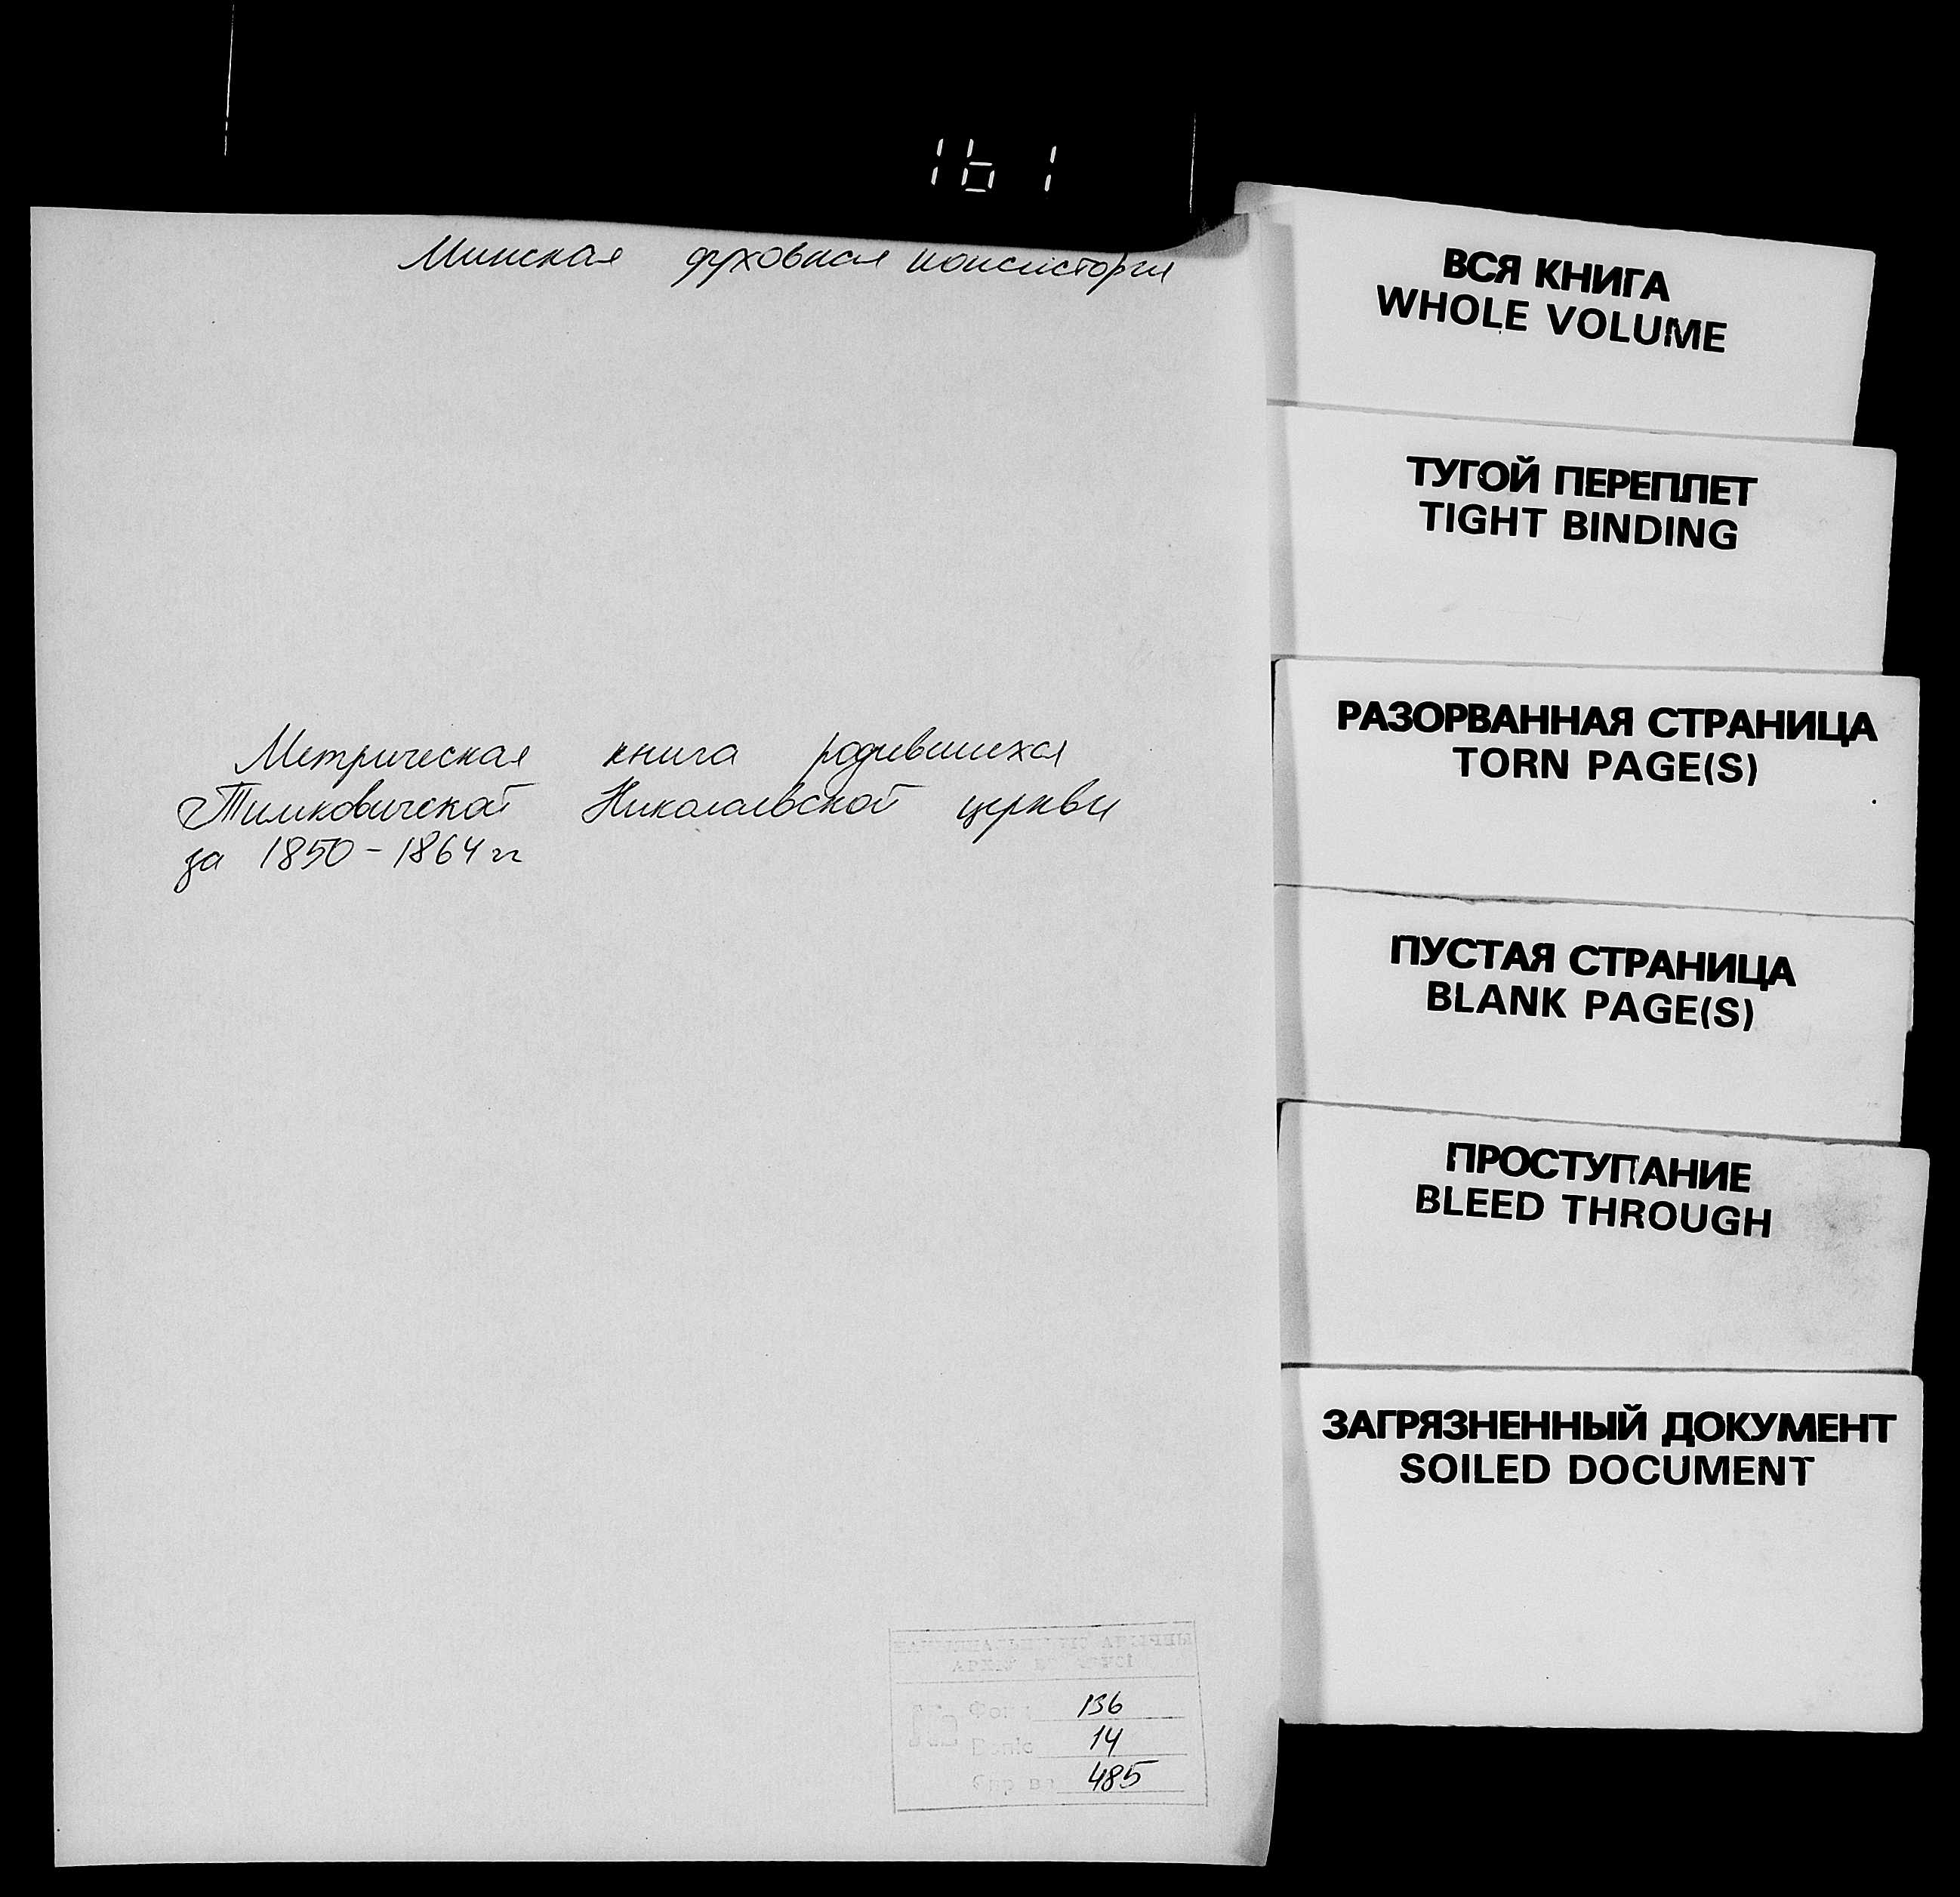 161
Минская духовная консистория
Метрическая книга родившихся
Тимковичской Николаевской церкви
за 1850-1864 гг
136
14
485
ВСЯ КНИГА
WHOLE VOLUME
ТУГОЙ ПЕРЕПЛЕТ
TIGHT BINDING
РАЗОРВАННАЯ СТРАНИЦА
TORN PAGE(S)
ПУСТАЯ СТРАНИЦА
BLANK PAGE(S)
ПРОСТУПАНИЕ
BLEED THROUGH
ЗАГРЯЗНЕННЫЙ ДОКУМЕНТ
SOILED DOCUMENT